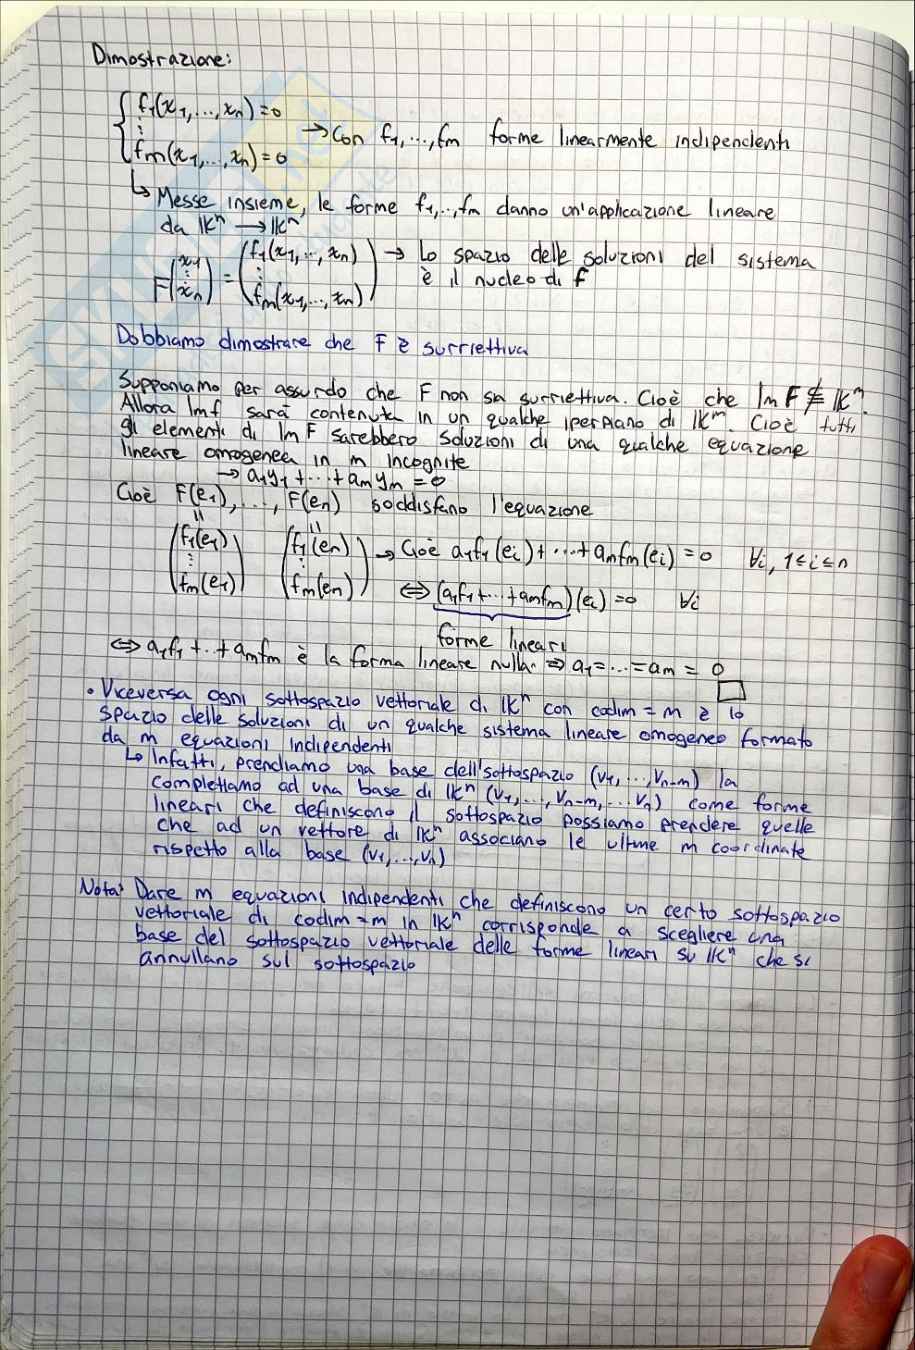 Dimostrazione:
{ f₁(x₁,...,xₙ)=0
⋮ → Con f₁,...,fm forme linearmente indipendenti
fm(x₁,...,xₙ)=0
↳ Messe insieme, le forme f₁,..,fm danno un'applicazione lineare
da Kⁿ → Kⁿ
F(x₁ ⋮ xₙ) = (f₁(x₁,...,xₙ) ⋮ fm(x₁,...,xₙ)) → Lo spazio delle soluzioni del sistema
è il nucleo di f
Dobbiamo dimostrare che F è surriettiva
Supponiamo per assurdo che F non sia surriettiva. Cioè che Im F ⊊ Kᵐ.
Allora Imf sarà contenuta in un qualche iperpiano di Kᵐ. Cioè tutti
gli elementi di Im F sarebbero soluzioni di una qualche equazione
lineare omogenea in m incognite
→ a₁y₁+...+amym=0
Cioè F(e₁),...,F(en) soddisfano l'equazione
" "
(f₁(e₁) ⋮ fm(e₁)) (f₁(en) ⋮ fm(en)) → Cioè a₁f₁(ei)+...+amfm(ei)=0 ∀i, 1≤i≤n
⇔ (a₁f₁+...+amfm)(ei)=0 ∀i
forme lineari
⇔ a₁f₁+..+amfm è la forma lineare nulla ⇒ a₁=...=am=0
□
• Viceversa ogni sottospazio vettoriale di Kⁿ con codim=m è lo
spazio delle soluzioni di un qualche sistema lineare omogeneo formato
da m equazioni indipendenti
↳ Infatti, prendiamo una base dell'sottospazio (v₁,...,vₙ₋m) la
completiamo ad una base di Kⁿ (v₁,...,vₙ₋m,...vₙ) come forme
lineari che definiscono il sottospazio possiamo prendere quelle
che ad un vettore di Kⁿ associano le ultime m coordinate
rispetto alla base (v₁,...,vₙ)
Nota: Dare m equazioni indipendenti che definiscono un certo sottospazio
vettoriale di codim=m in Kⁿ corrisponde a scegliere una
base del sottospazio vettoriale delle forme lineari su Kⁿ che si
annullano sul sottospazio